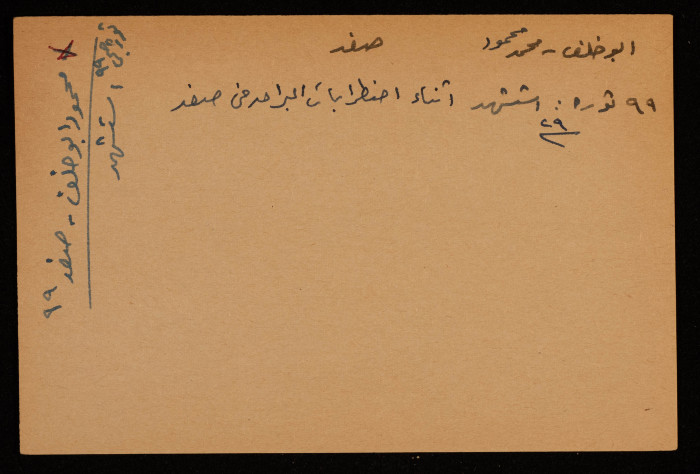 ابو خلف - محمد محمود صفد
٩٩ ثوره : استشهد اثناء اضطرابات البراق في صفد
٢٩
محمود ابو خلف - صفد ٩٩
استشهد